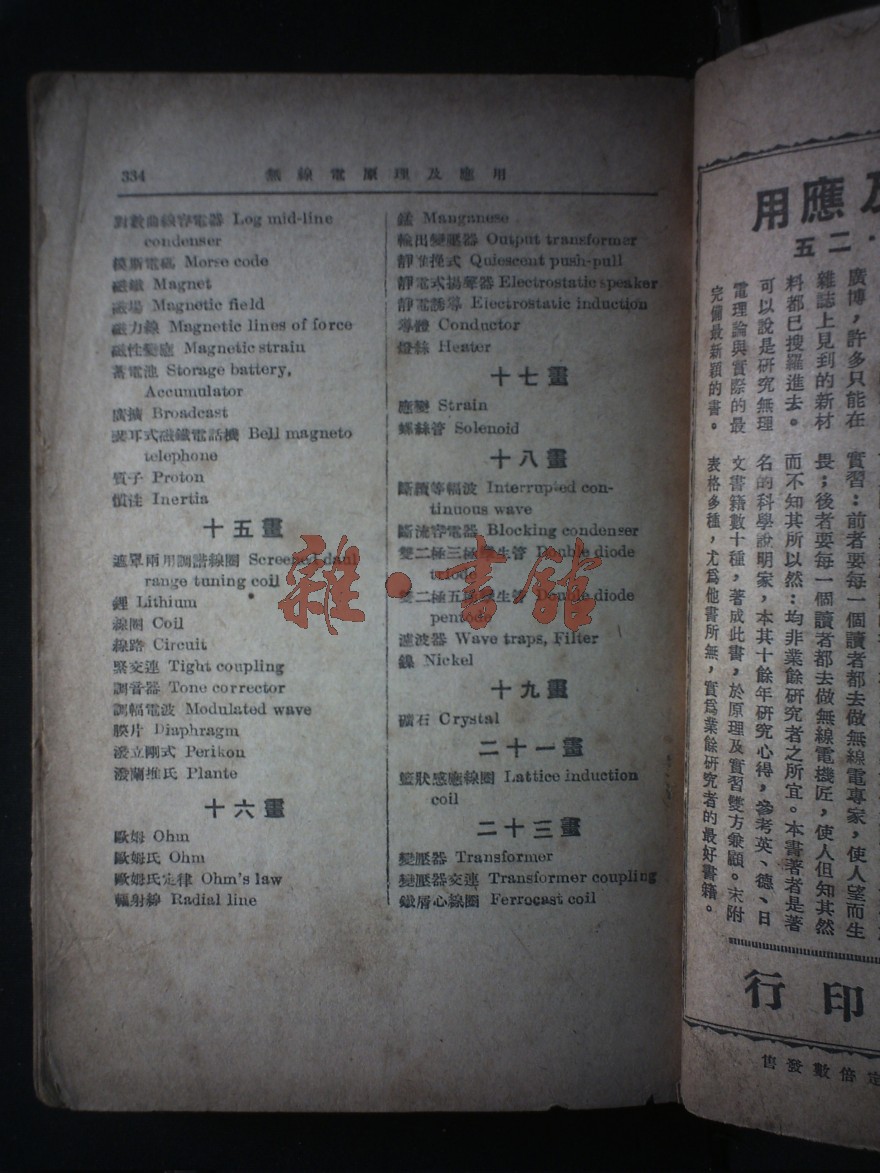 334 無線電原理及應用
對數曲線容電器 Log mid-line
condenser
模斯電碼 Morse code
磁鐵 Magnet
磁場 Magnetic field
磁力線 Magnetic lines of force
磁性變應 Magnetic strain
蓄電池 Storage battery,
Accumulator
廣播 Broadcast
耳式磁鐵電話機 Bell magneto
telephone
質子 Proton
慣性 Inertia
十五畫
遮罩兩用調諧線圈 Screened dual
range tuning coil
鋰 Lithium
線圈 Coil
線路 Circuit
緊交連 Tight coupling
調音器 Tone corrector
調幅電波 Modulated wave
膜片 Diaphragm
潑立剛式 Perikon
潑蘭推氏 Plante
十六畫
歐姆 Ohm
歐姆氏 Ohm
歐姆氏定律 Ohm's law
輻射線 Radial line
錳 Manganese
輸出變壓器 Output transformer
靜推挽式 Quiescent push-pull
靜電式揚聲器 Electrostatic speaker
靜電誘導 Electrostatic induction
導體 Conductor
燈絲 Heater
十七畫
應變 Strain
螺絲管 Solenoid
十八畫
斷續等幅波 Interrupted con-
tinuous wave
斷流容電器 Blocking condenser
雙二極三極 生管 Double diode
triode
雙二極五極 生管 Double diode
pentode
濾波器 Wave traps, Filter
鎳 Nickel
十九畫
礦石 Crystal
二十一畫
籃狀感應線圈 Lattice induction
coil
二十三畫
變壓器 Transformer
變壓器交連 Transformer coupling
鐵屑心線圈 Ferrocast coil
雜·書館
及應用
·二五
廣博，許多只能在
雜誌上見到的新材
料都已搜羅進去。
可以說是研究無理
電理論與實際的最
完備最新穎的書。
實習：前者要每一個讀者都去做無線電專家，使人望而生
畏；後者要每一個讀者都去做無線電機匠，使人但知其然
而不知其所以然：均非業餘研究者之所宜。本書著者是著
名的科學說明家，本其十餘年研究心得，參考英、德、日
文書籍數十種，著成此書，於原理及實習雙方兼顧。末附
表格多種，尤爲他書所無，實爲業餘研究者的最好書籍。
印行
定倍數發售